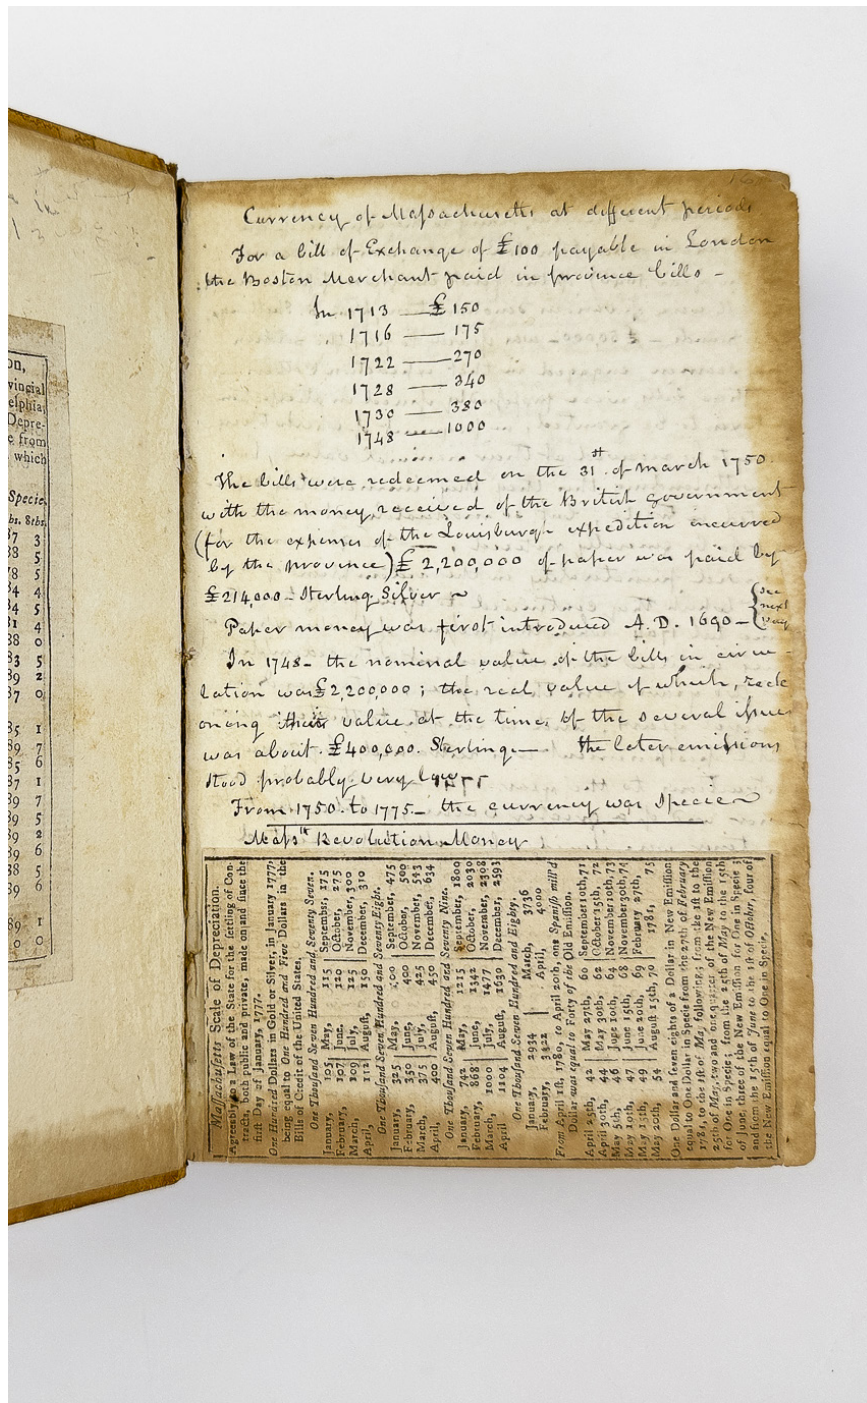 on,
vincial
elphia;
Depre-
e from
which
Specie.
bs. 8ths.
87 3
88 5
78 5
84 4
84 5
81 4
88 0
83 5
89 2
87 0
85 1
89 7
85 6
87 1
89 7
89 5
89 2
89 6
88 5
89 6
89 1
0 0
Currency of Massachusetts at different periods
For a bill of Exchange of £100 payable in London
the Boston Merchant paid in province bills -
In 1713 — £150
1716 — 175
1722 — 270
1728 — 340
1730 — 380
1748 — 1000
The bills were redeemed on the 31st of march 1750
with the money received of the British government
(for the expenses of the Louisburgh expedition incurred
by the province) £2,200,000 of paper was paid by
£214,000 - Sterling Silver ~
Paper money was first introduced A.D. 1690 - {see
next
page
In 1748 - the nominal value of the bills in circu -
lation was £2,200,000; the real value of which, reck
oning their value at the time of the several issues
was about £400,000. Sterling — the later emissions
stood probably very low
From 1750. to 1775 - the currency was Specie ~
Massts Revolution Money
Massachusetts Scale of Depreciation.
Agreeably to a Law of the State for the settling of Con-
tracts, both public and private, made on and since the
first Day of January, 1777.
One Hundred Dollars in Gold or Silver, in January 1777,
being equal to One Hundred and Five Dollars in the
Bills of Credit of the United States.
One Thousand Seven Hundred and Seventy Seven.
January, 105 May, 115 September, 175
February, 107 June, 120 October, 275
March, 109 July, 125 November, 300
April, 112 August, 150 December, 310
One Thousand Seven Hundred and Seventy Eight.
January, 325 May, 400 September, 475
February, 350 June, 400 October, 500
March, 375 July, 425 November, 545
April, 400 August, 450 December, 634
One Thousand Seven Hundred and Seventy Nine.
January, 742 May, 1215 September, 1800
February, 868 June, 1342 October, 2030
March, 1000 July, 1477 November, 2308
April 1104 August, 1630 December, 2593
One Thousand Seven Hundred and Eighty.
January, 2934 March, 3736
February, 3322 April, 4000
From April 1st, 1780, to April 20th, one Spanish mill'd
Dollar was equal to Forty of the Old Emission.
April 25th, 42 May 27th, 60 September 10th, 71
April 30th, 44 May 30th, 62 October 15th, 72
May 5th, 46 June 10th, 64 November 10th, 73
May 10th, 47 June 15th, 68 November 30th, 74
May 15th, 49 June 20th, 69 February 27th,
May 20th, 54 August 15th, 70 1781, 75
One Dollar and seven eights of a Dollar in New Emission
equal to One Dollar in Specie from the 27th of February
1781, to the 1st of May following; from the 1st to the
25th of May, two and one quarter of the New Emission
for One in Specie; from the 25th of May to the 15th
of June three of the New Emission for One in Specie;
and from the 15th of June to the 1st of October, four of
the New Emission equal to One in Specie.